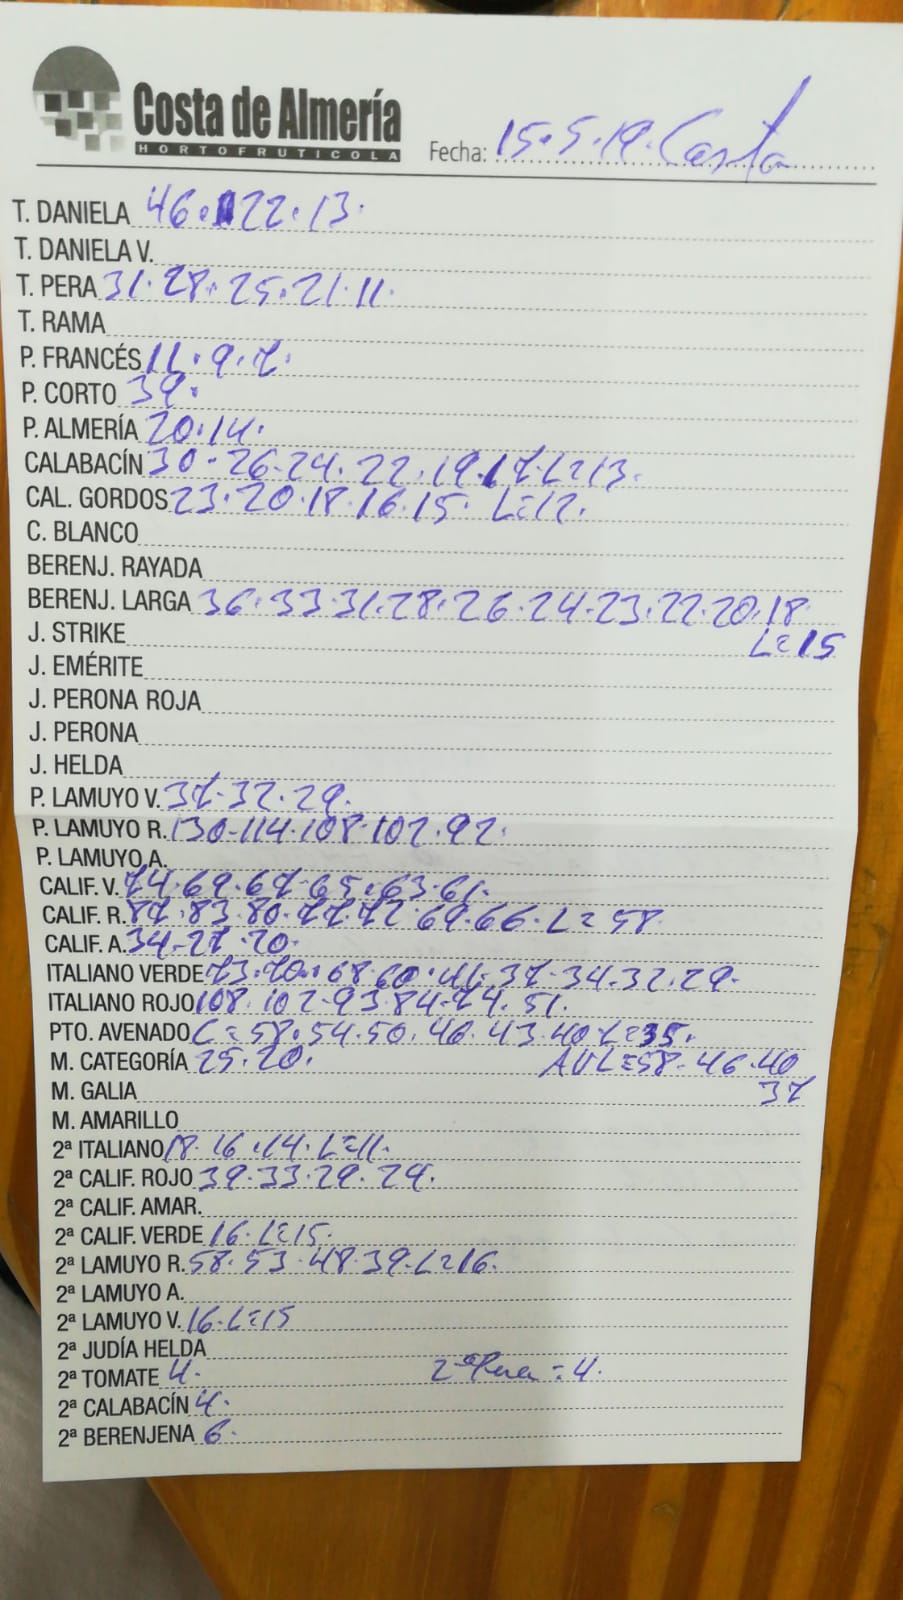 Costa de Almería
HORTOFRUTICOLA
Fecha: 15.5.19. Costa
T. DANIELA 46. 22. 13.
T. DANIELA V.
T. PERA 31. 28. 25. 21. 11.
T. RAMA
P. FRANCÉS 11. 9. 7.
P. CORTO 39.
P. ALMERÍA 20. 14.
CALABACÍN 30-26-24. 22. 19. 17. L=13.
CAL. GORDOS 23. 20. 18. 16. 15. L=12.
C. BLANCO
BERENJ. RAYADA
BERENJ. LARGA 36. 33-31. 28. 26. 24-23. 22. 20. 18
J. STRIKE L=15
J. EMÉRITE
J. PERONA ROJA
J. PERONA
J. HELDA
P. LAMUYO V. 37-32. 29.
P. LAMUYO R. 130-114-108-102. 92.
P. LAMUYO A.
CALIF. V. 74. 69. 67-65. 63. 61.
CALIF. R. 87. 83. 80. 77. 72. 69. 66. L=58
CALIF. A. 34-27. 20.
ITALIANO VERDE 73. 70. 68. 60. 41. 37-34. 32. 29.
ITALIANO ROJO 108. 102-93. 84-74. 51.
PTO. AVENADO C=58. 54. 50. 46. 43. 40 L=35.
M. CATEGORÍA 25. 20. AVL=58-46. 40
M. GALIA 37
M. AMARILLO
2ª ITALIANO 18. 16. 14. L=11.
2ª CALIF. ROJO 39. 33. 29. 24.
2ª CALIF. AMAR.
2ª CALIF. VERDE 16. L=15.
2ª LAMUYO R. 58. 53. 48. 39. L=16.
2ª LAMUYO A.
2ª LAMUYO V. 16. L=15
2ª JUDÍA HELDA
2ª TOMATE 4. 2ª Pera = 4.
2ª CALABACÍN 4.
2ª BERENJENA 6.